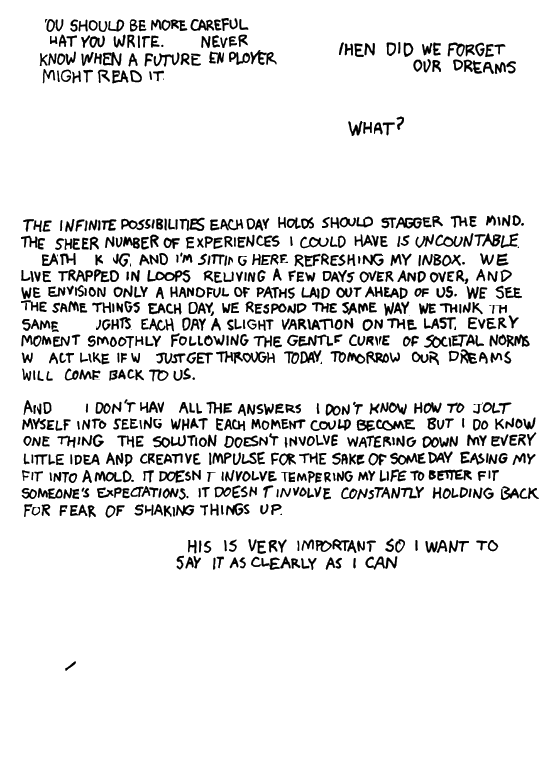 YOU SHOULD BE MORE CAREFUL
WHAT YOU WRITE. NEVER
KNOW WHEN A FUTURE EMPLOYER
MIGHT READ IT.
WHEN DID WE FORGET
OUR DREAMS
WHAT?
THE INFINITE POSSIBILITIES EACH DAY HOLDS SHOULD STAGGER THE MIND.
THE SHEER NUMBER OF EXPERIENCES I COULD HAVE IS UNCOUNTABLE,
AND I'M SITTING HERE REFRESHING MY INBOX. WE
LIVE TRAPPED IN LOOPS RELIVING A FEW DAYS OVER AND OVER, AND
WE ENVISION ONLY A HANDFUL OF PATHS LAID OUT AHEAD OF US. WE SEE
THE SAME THINGS EACH DAY, WE RESPOND THE SAME WAY WE THINK TH
SAME EACH DAY A SLIGHT VARIATION ON THE LAST, EVERY
MOMENT SMOOTHLY FOLLOWING THE GENTLE CURVE OF SOCIETAL NORMS
W ACT LIKE IF W JUST GET THROUGH TODAY, TOMORROW OUR DREAMS
WILL COME BACK TO US.
AND I DON'T HAV ALL THE ANSWERS I DON'T KNOW HOW TO JOLT
MYSELF INTO SEEING WHAT EACH MOMENT COULD BECOME BUT I DO KNOW
ONE THING THE SOLUTION DOESN'T INVOLVE WATERING DOWN MY EVERY
LITTLE IDEA AND CREATIVE IMPULSE FOR THE SAKE OF SOMEDAY EASING MY
FIT INTO A MOLD. IT DOESN'T INVOLVE TEMPERING MY LIFE TO BETTER FIT
SOMEONE'S EXPECTATIONS. IT DOESN'T INVOLVE CONSTANTLY HOLDING BACK
FOR FEAR OF SHAKING THINGS UP.
HIS IS VERY IMPORTANT SO I WANT TO
SAY IT AS CLEARLY AS I CAN